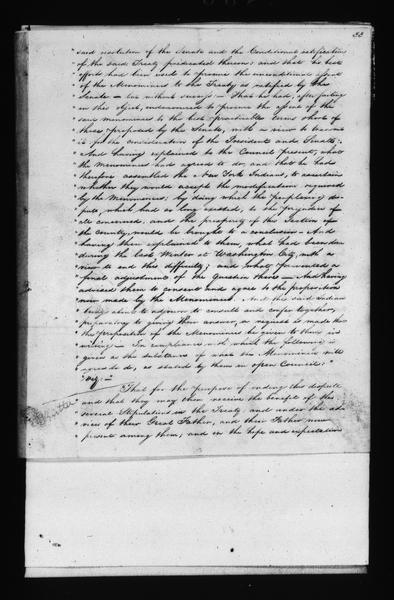 33
"said resolution of the Senate and the Conditional ratification
"of the said Treaty predicated thereon; and that he best
"efforts had been used to procure the unconditional assent
"of the Menominies to the Treaty as ratified by the
"Senate – but without success – That he had, after failing
"in this object, endeavored to procure the assent of the
"said Menominies to the best practicable terms short of
"those proposed by the Senate, with a view to
"it for the consideration of the President and Senate;
"And having explained to the Council present, what
"the Menominies had agreed to do, and that he had
"therefore assembled the New York Indians, to ascertain
"whether they would accept the modifications required
"by the Menominies; by doing which the perplexing dis-
"pute which had so long existed, to the prejudice of
"all concerned, and the prosperity of this Section of
"the Country, would be brought to a conclusion – And
"having then explained to them, what had been done
"during the last Winter at Washington City, with a
"view to end this difficulty; and what prevented a
"final adjustment of the question there – And having
"advised them to consent and agree to the proposition
"now made by the Menominies. And the said Indians
"being about to adjourn to consult and confer together,
"preparatory to giving their answer, a request is made that
"the proposition of the Menominies be given to them in
"writing – In compliance with which the following is
"given as the substance of what the Menominies will
"agree to do, as stated by them in open Council;
"viz: –
"That for the purpose of ending this dispute
"and that they may then receive the benefit of the
"several Stipulations in the Treaty, and under the ad-
"vice of their Great Father, and their Father now
"present among them, and in the hope and expectation